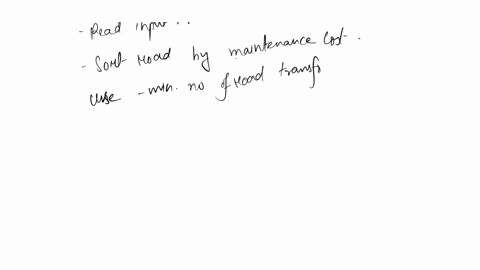 - Read input ..
- Sort road by maintenance cost .
use - min. no. of road transfo